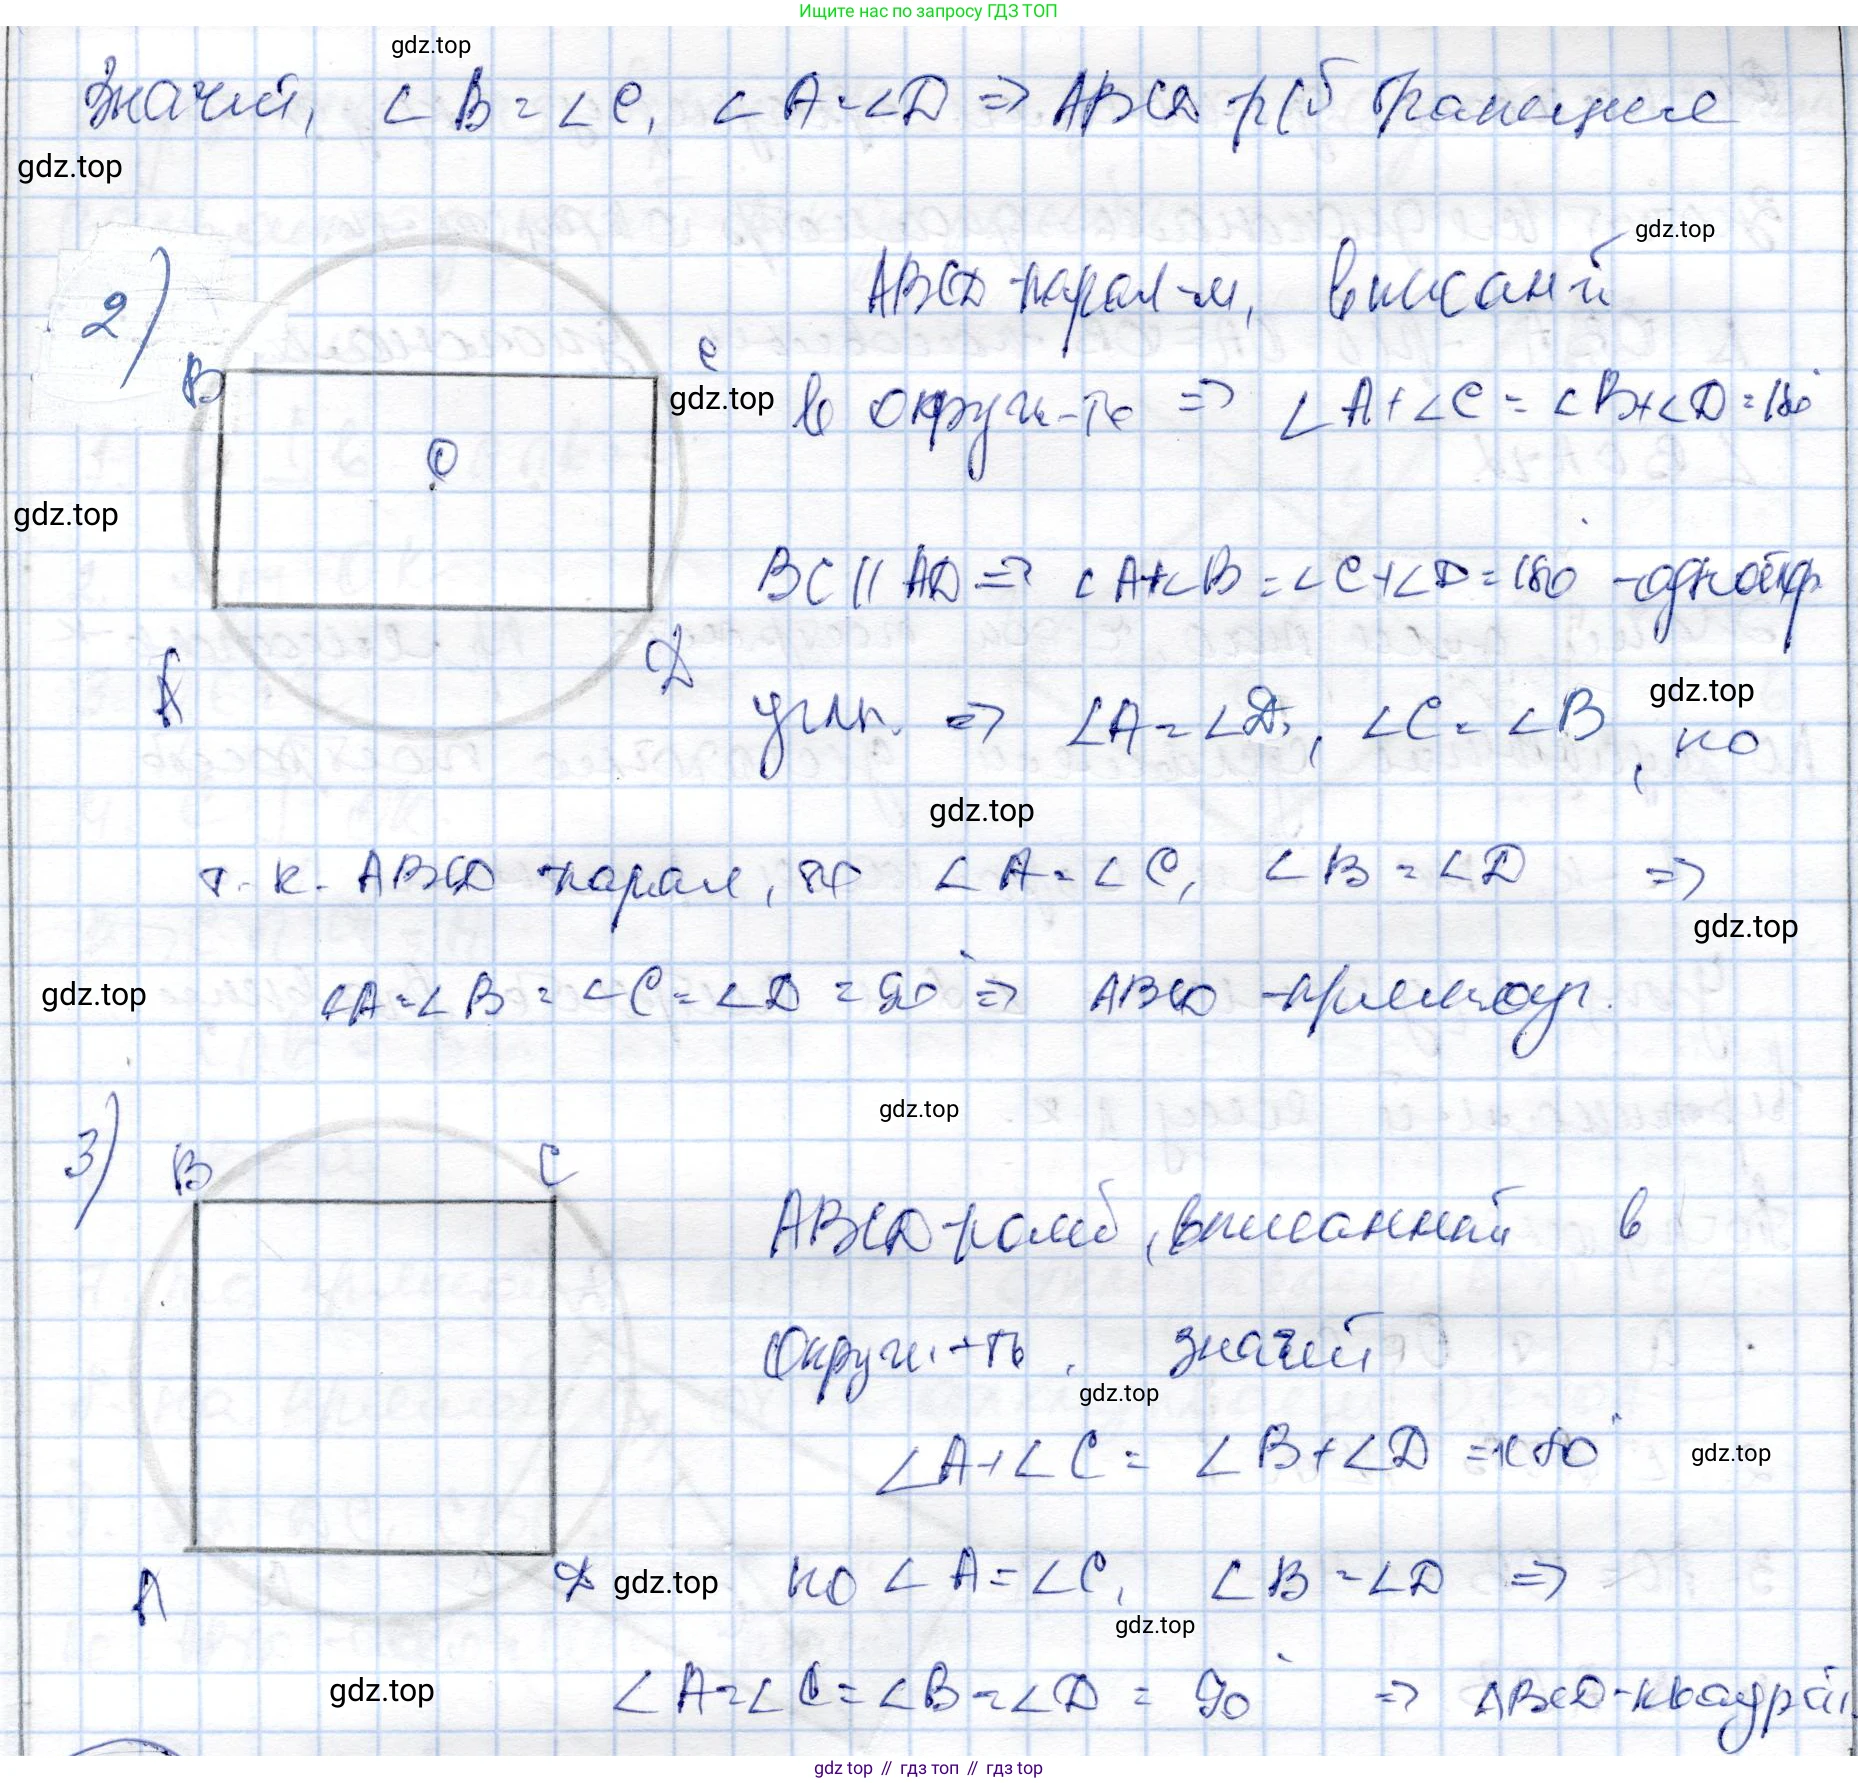 Ищите нас по запросу ГДЗ ТОП
gdz.top
Значит, ∠B = ∠C, ∠A = ∠D ⇒ ABCD - р/б трапеция
gdz.top
2)
gdz.top
ABCD - парал-м, вписан-й
B
C
gdz.top
в окружн-ть ⇒ ∠A + ∠C = ∠B + ∠D = 180°
O
gdz.top
BC || AD ⇒ ∠A + ∠B = ∠C + ∠D = 180° - одностор.
A
D
углы. ⇒ ∠A = ∠D, ∠C = ∠B, но
gdz.top
gdz.top
т.к. ABCD - парал, то ∠A = ∠C, ∠B = ∠D ⇒
gdz.top
gdz.top
∠A = ∠B = ∠C = ∠D = 90° ⇒ ABCD - прямоуг.
gdz.top
3)
B
C
ABCD - ромб, вписанный в
окружн-ть, значит
gdz.top
∠A + ∠C = ∠B + ∠D = 180°
gdz.top
A
D
gdz.top
но ∠A = ∠C, ∠B = ∠D ⇒
gdz.top
gdz.top
∠A = ∠C = ∠B = ∠D = 90° ⇒ ABCD - квадрат.
gdz top // гдз топ // гдз top